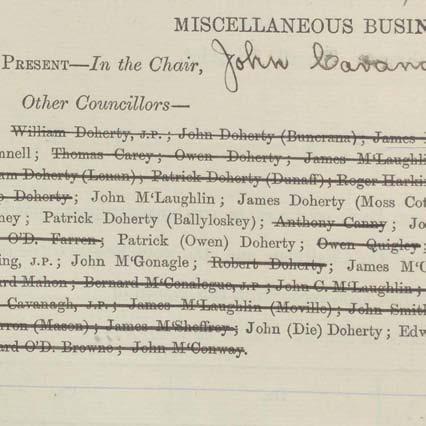 MISCELLANEOUS BUSIN
PRESENT—In the Chair, John Cavana
Other Councillors—
William Doherty, J.P.; John Doherty (Buncrana); James
nnell; Thomas Carey; Owen Doherty; James M'Laughli
am Doherty (Lenan); Patrick Doherty (Dunaff); Roger Harkin
Doherty; John M'Laughlin; James Doherty (Moss Cot
ney; Patrick Doherty (Ballyloskey); Anthony Canny; Jo
O'D. Farren; Patrick (Owen) Doherty; Owen Quigley;
ing, J.P.; John M'Gonagle; Robert Doherty; James M'
ard Mahon; Bernard M'Conalogue, J.P; John C. M'Laughlin;
Cavanagh, J.P.; James M'Laughlin (Moville); John Smith
rron (Mason); James M'Sheffrey; John (Die) Doherty; Edw
ard O'D. Browne; John M'Conway.